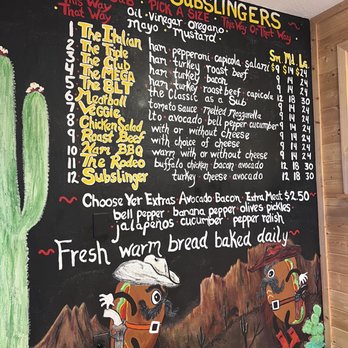 SUBSLINGERS
This Way SUB - PICK A SIZE - This Way Or That Way
That Way
Oil · Vinegar · Oregano
Mayo · Mustard
Sm. Md. Lg.
1 The Italian ham pepperoni capicola salami $9 $14 $24
2 The Triple ham turkey roast beef 9 14 24
3 The Club ham turkey bacon 9 14 24
4 The MEGA ham turkey roast beef capicola 12 18 30
5 The BLT the Classic as a Sub 9 14 24
6 Meatball tomato sauce Melted Mozzarella 9 14 24
7 Veggie lto avocado bell pepper cucumber 9 14 24
8 Chicken Salad with or without cheese 9 14 24
9 Roast Beef with choice of cheese 9 14 24
10 Ham BBQ warm with or without cheese 9 14 24
11 The Rodeo buffalo chicken bacon avocado 12 18 30
12 Subslinger turkey cheese avocado 12 18 30
Choose Yer Extras: Avocado Bacon Extra Meat $2.50
bell pepper · banana pepper olives pickles
jalapenos cucumber pepper relish
Fresh warm bread baked daily